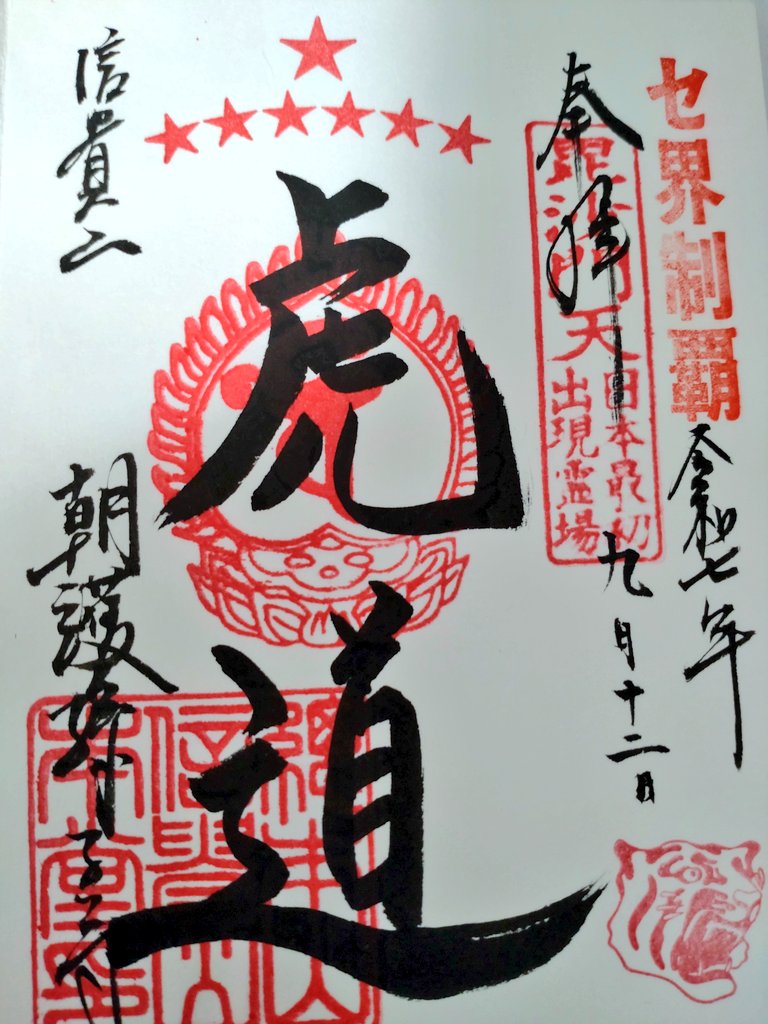 セ界制覇
奉拝
毘沙門天
日本最初
出現霊場
令和七年
九月十二日
虎道
信貴山
朝護孫子寺